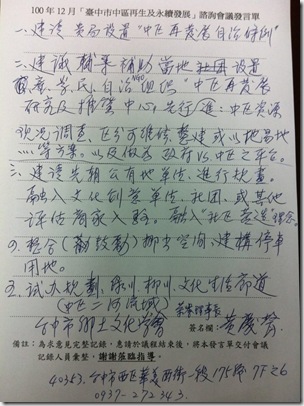 100年12月「臺中市中區再生及永續發展」諮詢會議發言單
一、建議 貴局設置"中區再發展自治條例"
二、建議 輔導 補助 當地社團設置
NGO
觀察、學民、自治組織"中區再發展
研究及推營中心,先行進:中區資源
現況調查,區分可維修、整建或以地易地
…等方案。以及做為 政府VS.中區之平台。
三、建議先期公有地單位,進行規畫。
融入文化創意單位、社團、或其他
評估商家入駐。融入"社區營造"理念。
四、整合(勸鼓勵)柳南空間,建構停車
用地。
五、試办規劃、綠川、柳川、文化生活廊道
(中區二河流域)
台中市鄉土文化學會 榮譽理事長
簽名欄:黃慶聲
備註:為求意見完整記錄,惠請於議程結束後,將本發言單交付會議
記錄人員彙整,謝謝蒞臨指導。
40353.台中市西區華美西街一段175號7F之6
0937-272343